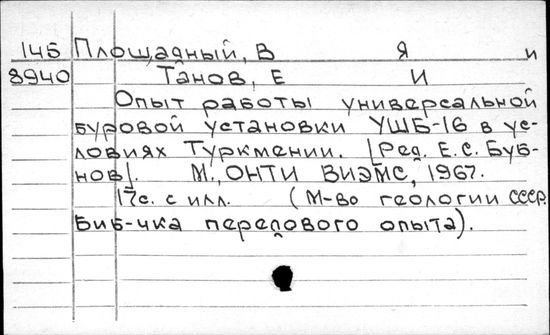 145 Площадный, В Я и
8940 Танов, Е И
Опыт работы универсальной
буровой установки УШБ-16 в ус-
ловиях Туркмении. [Ред. Е.С. Буб-
нов]. М., ОНТИ ВИЭМС, 1967.
17с. с илл. (М-во геологии СССР.
Биб-чка передового опыта).